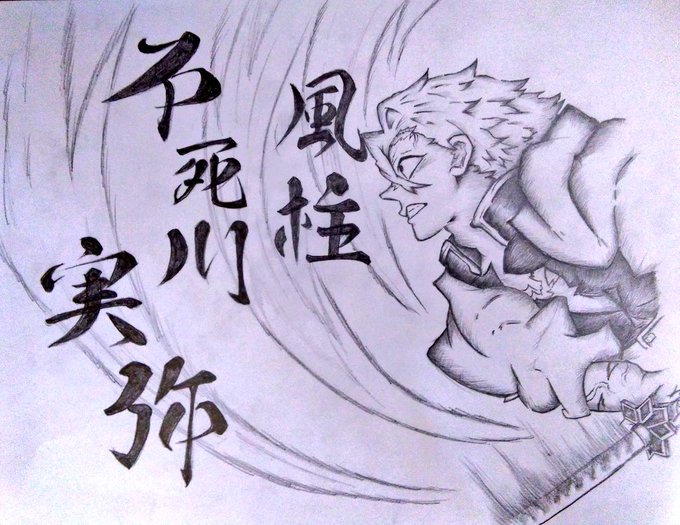 風柱
不死川
実弥